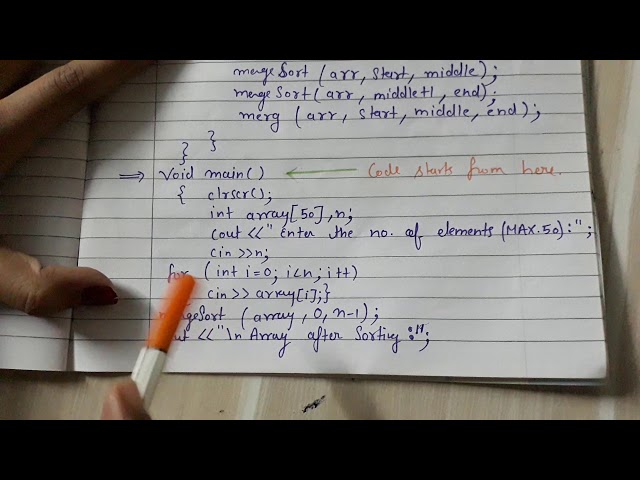 mergeSort (arr, start, middle);
mergeSort (arr, middle+1, end);
merg (arr, start, middle, end);
}
}
⇒ Void main() ← Code starts from here.
{ clrscr();
int array[50], n;
cout <<" Enter the no. of elements (MAX.50):";
cin >>n;
for (int i=0; i<n; i++)
cin >> array[i];}
Sort (array, 0, n-1);
<<"\n Array after Sorting :";